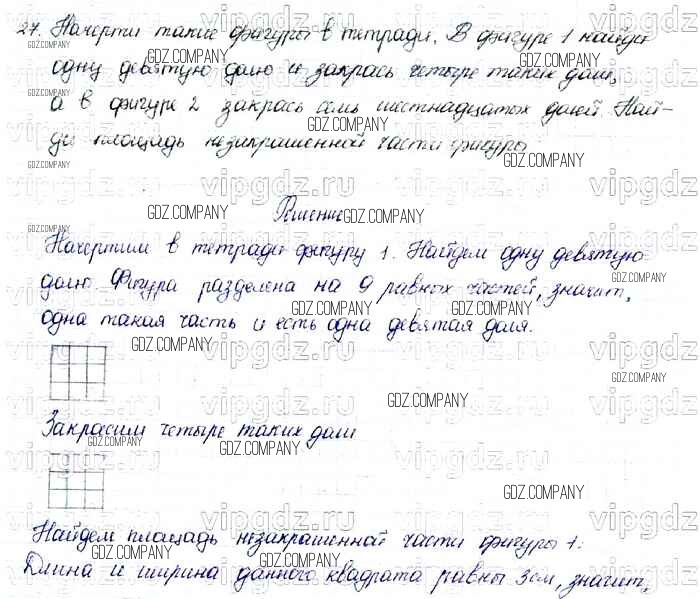 27. Начерти такие фигуры в тетради. В фигуре 1 найди
одну девятую долю и закрась четыре таких доли,
а в фигуре 2 закрась семь шестнадцатых долей. Най-
ди площадь незакрашенной части фигуры
Решение
Начертим в тетради фигуру 1. Найдем одну девятую
долю. Фигура разделена на 9 равных частей, значит,
одна такая часть и есть одна девятая доля.
Закрасим четыре таких доли
Найдем площадь незакрашенной части фигуры 1.
Длина и ширина данного квадрата равны 3см, значит,
GDZ.COMPANY
vipgdz.ru